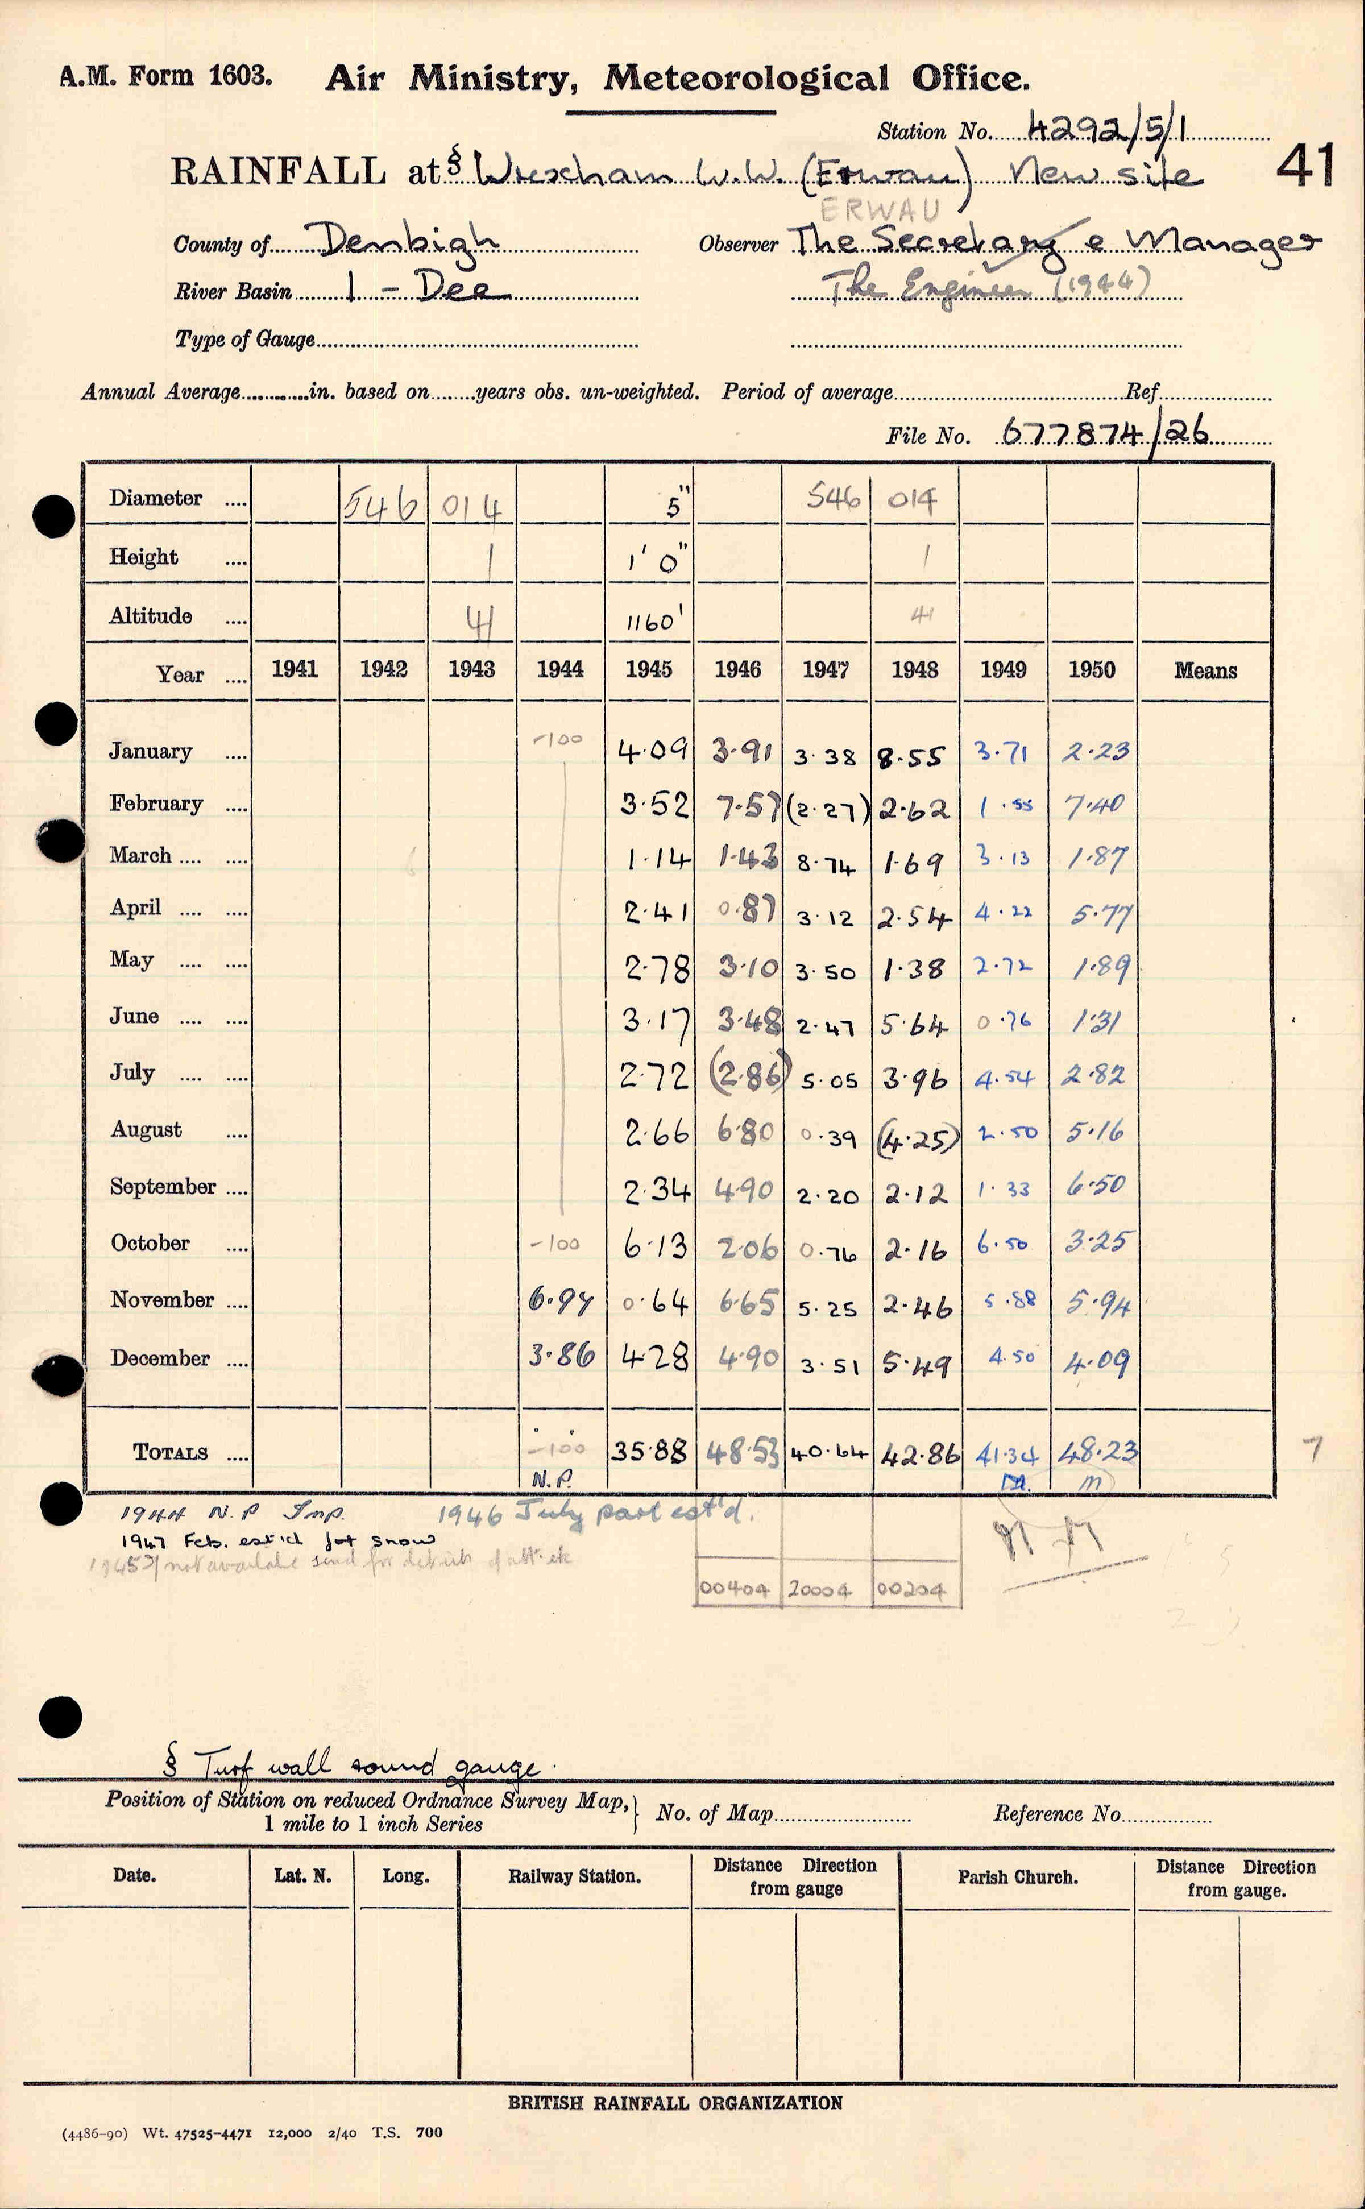 A.M. Form 1603. Air Ministry, Meteorological Office.
Station No. 4292/5/1
41
RAINFALL at § Wrexham W.W. (Erwau) New site
ERWAU
County of Denbigh Observer The Secretary & Manager
River Basin 1 - Dee The Engineer (1944)
Type of Gauge
Annual Average in. based on years obs. un-weighted. Period of average Ref
File No. 677874/26
Diameter 546 014 5" 546 014
Height 1 1' 0" 1
Altitude 41 1160' 41
Year 1941 1942 1943 1944 1945 1946 1947 1948 1949 1950 Means
January -100 4.09 3.91 3.38 8.55 3.71 2.23
February 3.52 7.57 (2.27) 2.62 1.55 7.40
March 1.14 1.43 8.74 1.69 3.13 1.87
April 2.41 0.87 3.12 2.54 4.22 5.77
May 2.78 3.10 3.50 1.38 2.72 1.89
June 3.17 3.48 2.47 5.64 0.76 1.31
July 2.72 (2.86) 5.05 3.96 4.54 2.82
August 2.66 6.80 0.39 (4.25) 2.50 5.16
September 2.34 4.90 2.20 2.12 1.33 6.50
October -100 6.13 2.06 0.76 2.16 6.50 3.25
November 6.97 0.64 6.65 5.25 2.46 5.88 5.94
December 3.86 4.28 4.90 3.51 5.49 4.50 4.09
TOTALS -100 35.88 48.53 40.64 42.86 41.34 48.23 7
N.P. M. M
1944 N.P Imp. 1946 July part est'd.
1947 Feb. est'd for snow
not available send for details of alt. etc
00404 20004 00204
§ Turf wall round gauge.
Position of Station on reduced Ordnance Survey Map, 1 mile to 1 inch Series } No. of Map Reference No.
Date. Lat. N. Long. Railway Station. Distance Direction from gauge Parish Church. Distance Direction from gauge.
BRITISH RAINFALL ORGANIZATION
(4486-90) Wt. 47525-4471 12,000 2/40 T.S. 700